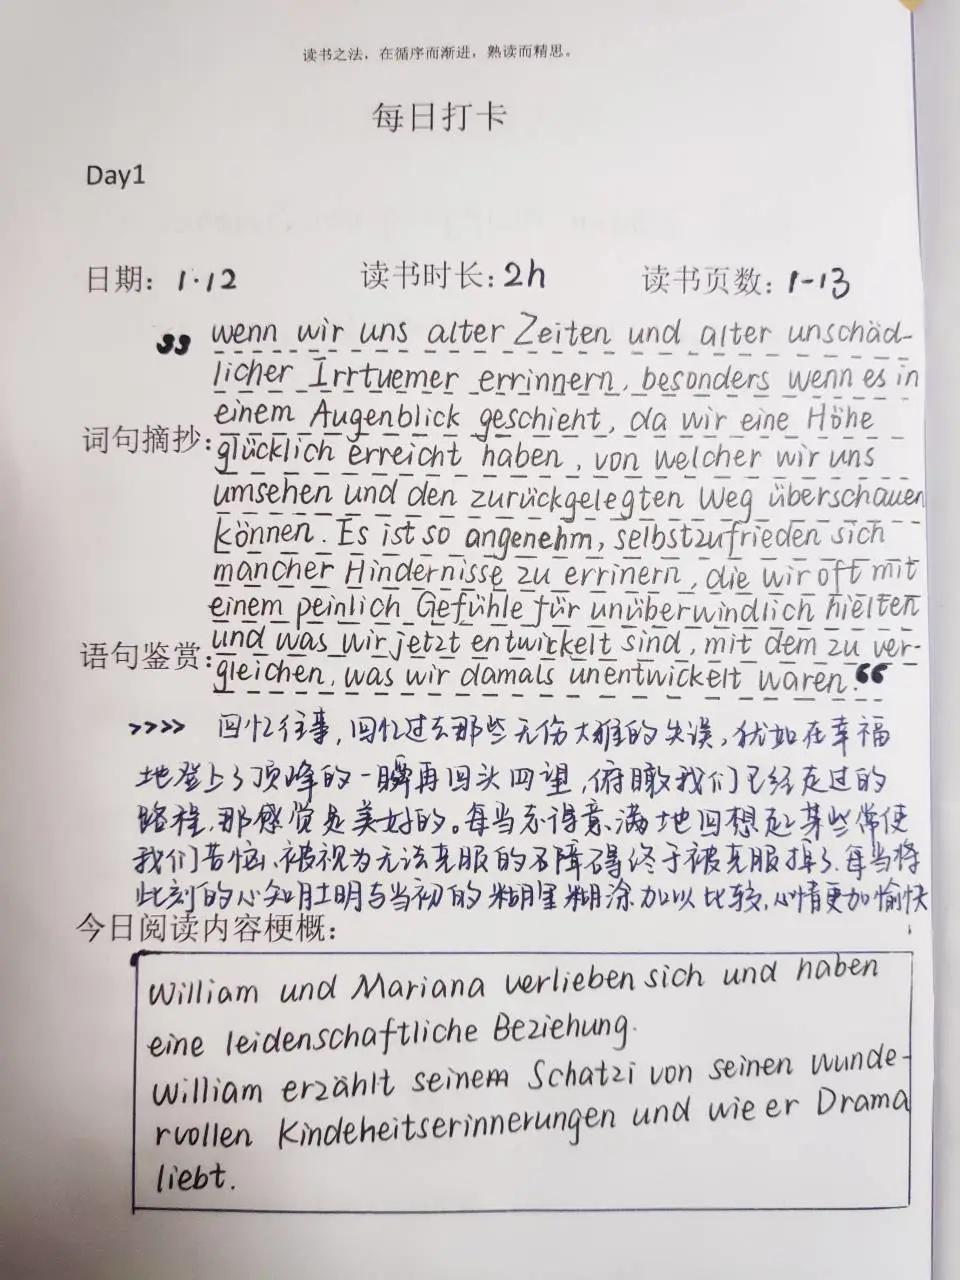 读书之法，在循序而渐进，熟读而精思。
每日打卡
Day1
日期：1.12 读书时长：2h 读书页数：1-13
词句摘抄：
„ wenn wir uns alter Zeiten und alter unschäd-
licher Irrtuemer errinnern, besonders wenn es in
einem Augenblick geschieht, da wir eine Höhe
glücklich erreicht haben, von welcher wir uns
umsehen und den zurückgelegten Weg überschauen
können. Es ist so angenehm, selbstzufrieden sich
mancher Hindernisse zu errinern, die wir oft mit
einem peinlich Gefühle für unüberwindlich hielten
und was wir jetzt entwickelt sind, mit dem zu ver-
gleichen, was wir damals unentwickelt waren.“
语句鉴赏：
>>>> 回忆往事，回忆过去那些无伤大雅的失误，犹如在幸福
地登上了顶峰的一瞬再回头四望，俯瞰我们已经走过的
路程，那感觉是美好的。每当志得意满地回想起某些常使
我们苦恼、被视为无法克服的障碍终于被克服掉了，每当将
此刻的心知肚明与当初的糊里糊涂加以比较，心情更加愉快
今日阅读内容梗概：
William und Mariana verlieben sich und haben
eine leidenschaftliche Beziehung.
William erzählt seinem Schatzi von seinen wunde-
rvollen Kindeheitserinnerungen und wie er Drama
liebt.